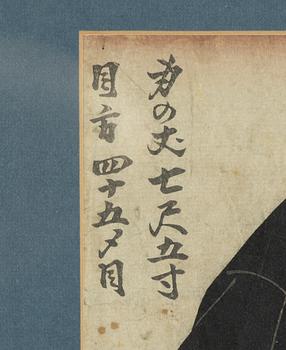 身の丈七尺五寸
目方四十五〆目